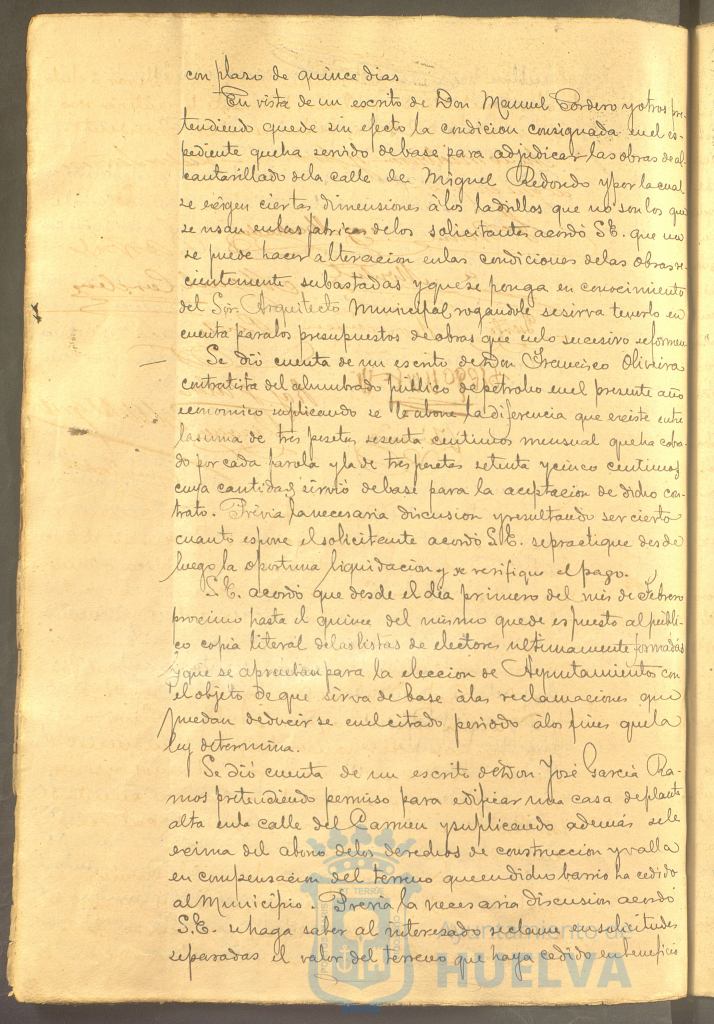 con plazo de quince dias
En vista de un escrito de Don Manuel Cordero y otros pre-
tendiendo quede sin efecto la condicion consignada en el es-
pediente que ha servido de base para adjudicar las obras de al-
cantarillado de la calle de Miguel Redondo y por la cual
se exigen ciertas dimensiones á los ladrillos que no son los que
se usan en las fabricas de los solicitantes acordó S.E. que no
se puede hacer alteracion en las condiciones de las obras re-
cientemente subastadas y que se ponga en conocimiento
del Sor. Arquitecto Municipal rogandole se sirva tenerlo en
cuenta para los presupuestos de obras que en lo sucesivo se formen
Se dió cuenta de un escrito de Don Francisco Oliveira
contratista del alumbrado publico de petroleo en el presente año
economico suplicando se le abone la diferencia que existe entre
la suma de tres pesetas sesenta centimos mensual que ha cobra-
do por cada farola y la de tres pesetas setenta y cinco centimos
cuya cantidad sirvió de base para la aceptacion de dicho con-
trato. Prévia la necesaria discusion y resultando ser cierto
cuanto espone el solicitante acordó S.E. se practique desde
luego la oportuna liquidacion y se verifique el pago.
S.E. acordó que desde el dia primero del mes de Febrero
procsimo hasta el quince del mismo quede espuesto al públi-
co copia literal de las listas de electores ultimamente formadas
y que se aprueban para la eleccion de Ayuntamientos con
el objeto de que sirva de base á las reclamaciones que
puedan deducirse en el citado periodo á los fines que la
ley determina.
Se dió cuenta de un escrito de Don José García Ra-
mos pretendiendo permiso para edificar una casa de planta
alta en la calle del Carmen y suplicando además se le
exima del abono de los derechos de construccion y valla
en compensacion del terreno que en dicho barrio ha cedido
al Municipio. Previa la necesaria discusion acordó
S.E. se haga saber al interesado reclame en solicitudes
separadas el valor del terreno que haya cedido en beneficio
Ayuntamiento de
HUELVA